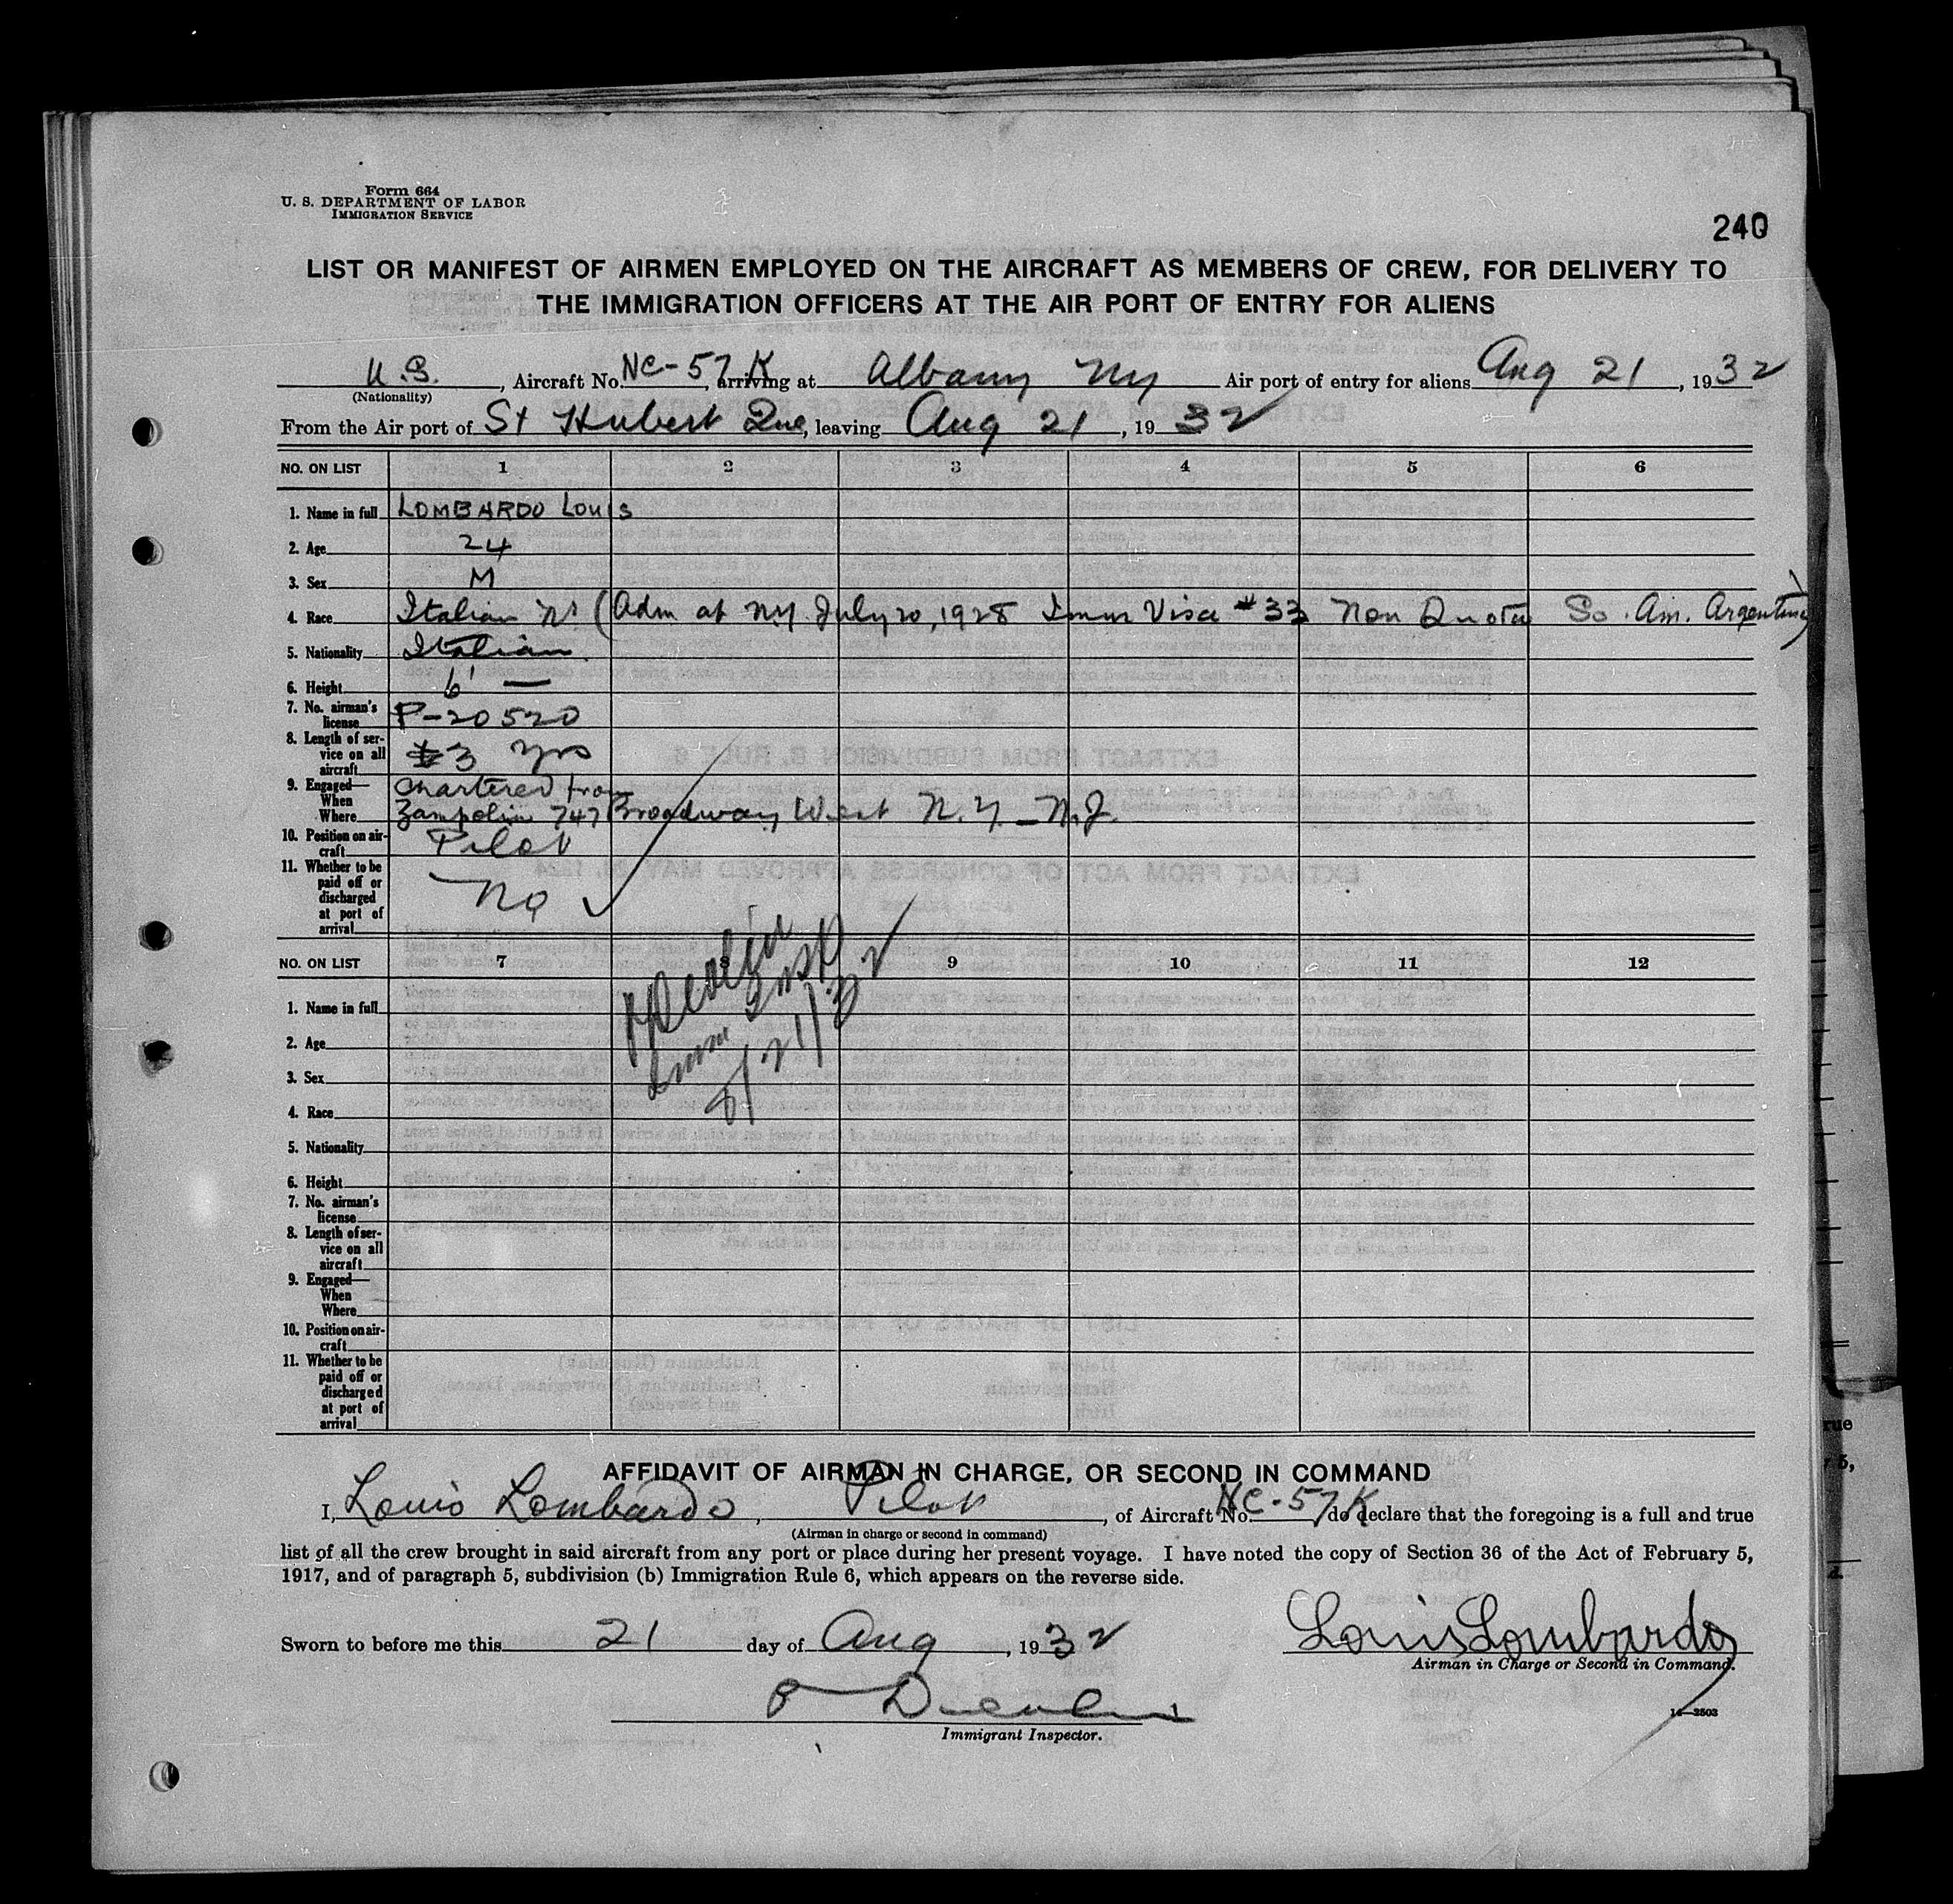 Form 664
U. S. DEPARTMENT OF LABOR
IMMIGRATION SERVICE
240
LIST OR MANIFEST OF AIRMEN EMPLOYED ON THE AIRCRAFT AS MEMBERS OF CREW, FOR DELIVERY TO
THE IMMIGRATION OFFICERS AT THE AIR PORT OF ENTRY FOR ALIENS
U.S., Aircraft No. NC-57K, arriving at Albany NY Air port of entry for aliens Aug 21, 1932
(Nationality)
From the Air port of St Hubert Que, leaving Aug 21, 1932
NO. ON LIST 1 2 3 4 5 6
1. Name in full LOMBARDO LOUIS
2. Age 24
3. Sex M
4. Race Italian (Adm at NY July 20, 1928 Imm Visa #33 Non Quota So. Am. Argentina)
5. Nationality Italian
6. Height 6' —
7. No. airman's license P-20520
8. Length of service on all aircraft 3 yrs
9. Engaged— When Where Chartered from
Zampolin 747 Broadway West N.Y. - N.J.
10. Position on aircraft Pilot
11. Whether to be paid off or discharged at port of arrival No
NO. ON LIST 7 8 9 10 11 12
Imm Insp
8/21/32
1. Name in full
2. Age
3. Sex
4. Race
5. Nationality
6. Height
7. No. airman's license
8. Length of service on all aircraft
9. Engaged— When Where
10. Position on aircraft
11. Whether to be paid off or discharged at port of arrival
AFFIDAVIT OF AIRMAN IN CHARGE, OR SECOND IN COMMAND
I, Louis Lombardo, Pilot, of Aircraft No. NC-57K do declare that the foregoing is a full and true
(Airman in charge or second in command)
list of all the crew brought in said aircraft from any port or place during her present voyage. I have noted the copy of Section 36 of the Act of February 5,
1917, and of paragraph 5, subdivision (b) Immigration Rule 6, which appears on the reverse side.
Sworn to before me this 21 day of Aug, 1932
Louis Lombardo
Airman in Charge or Second in Command.
Immigrant Inspector.
14—2503